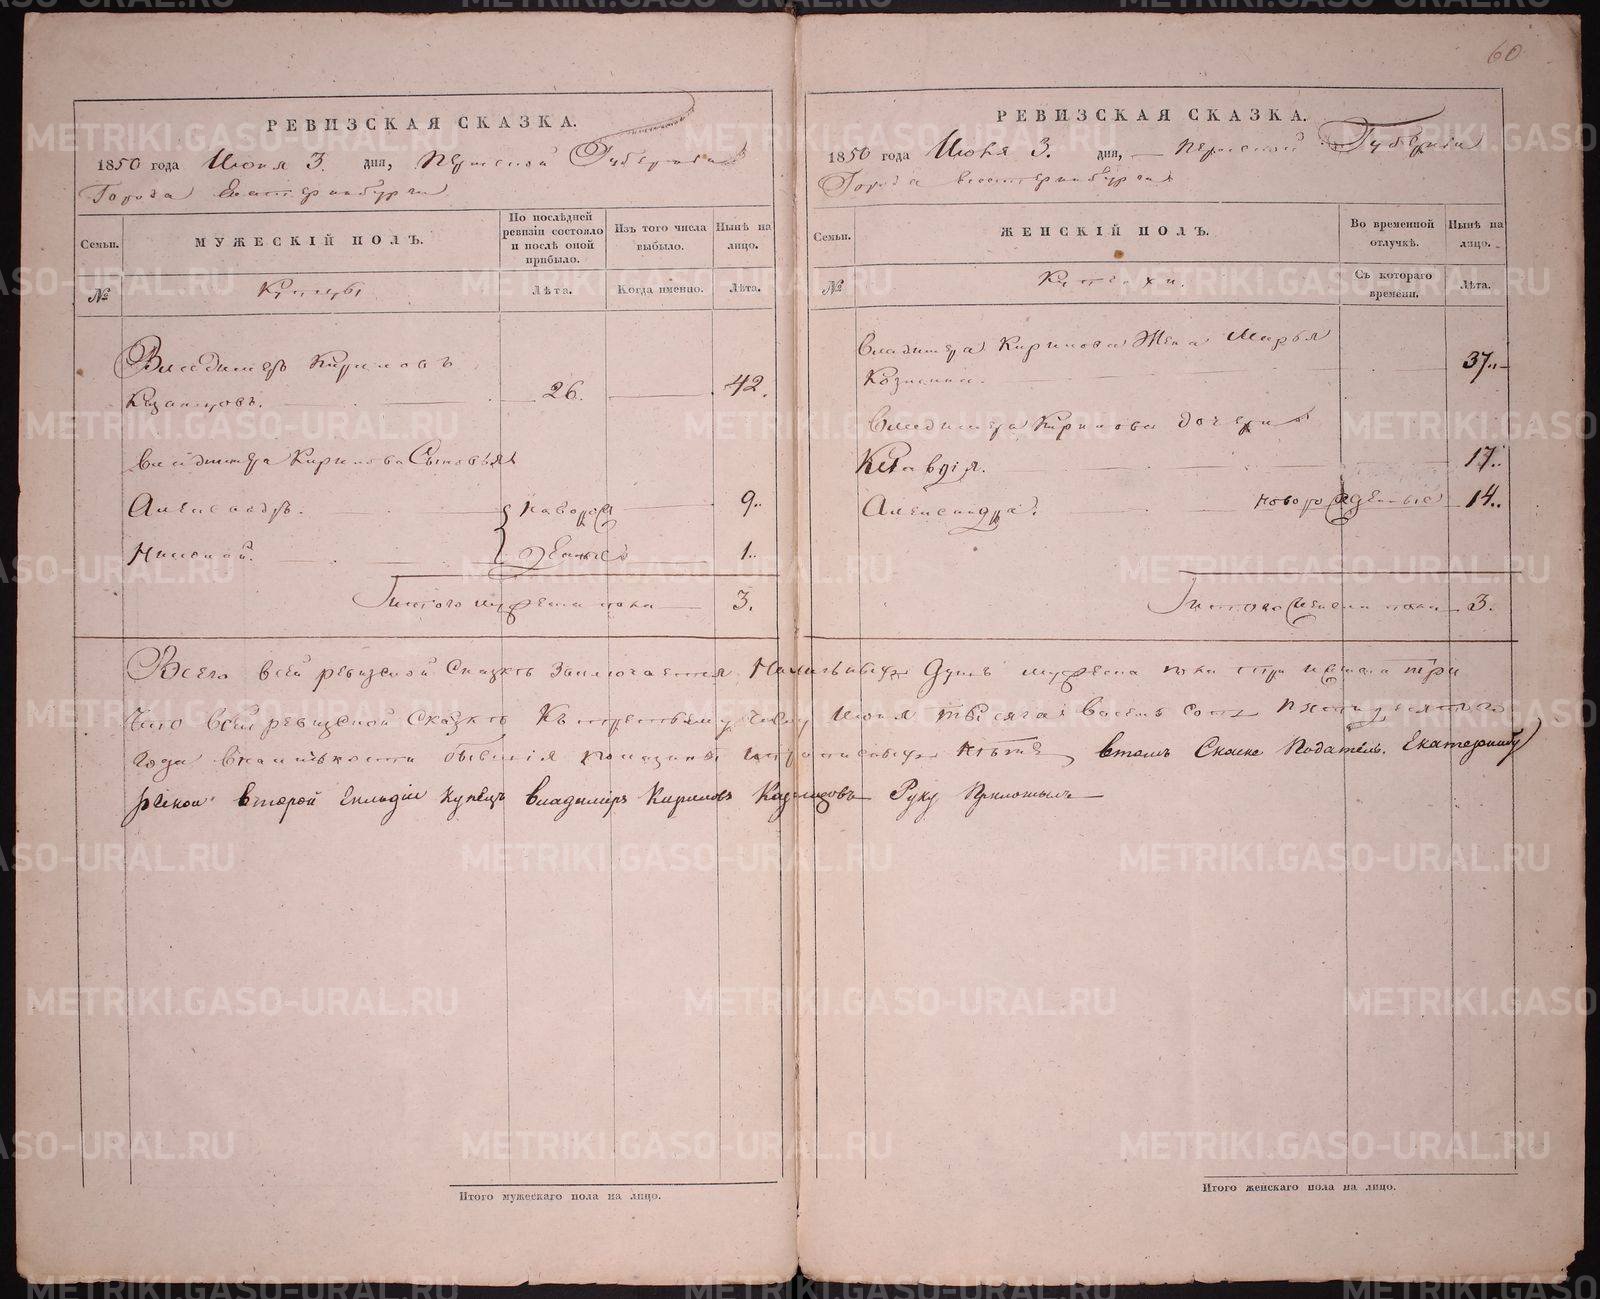 60
РЕВИЗСКАЯ СКАЗКА.
1850 года Июня 3. дня, Пермской Губернии
Города Екатеринбурга
Семьи.
МУЖЕСКІЙ ПОЛЪ.
По послѣдней ревизіи состояло и послѣ оной прибыло.
Изъ того числа выбыло.
Нынѣ на лицо.
№
Купцы
Лѣта.
Когда именно.
Лѣта.
Владимеръ Кириловъ
Казанцовъ. 26. 42.
Владимера Кирилова Сыновья
Александръ. новорож 9..
Николай. денные 1..
Итого мужеска пола 3.
РЕВИЗСКАЯ СКАЗКА.
1850 года Июня 3. дня, Пермской Губерніи
Города Екатеринбурга
Семьи.
ЖЕНСКІЙ ПОЛЪ.
Во временной отлучкѣ.
Нынѣ на лицо.
№
Купчихи.
Съ котораго времени.
Лѣта.
Владимера Кирилова Жена Марья
Козмина. 37..
Владимера Кирилова дочери
Клавдія. 17..
Александра. новорожденные 14..
Итого женска пола 3.
Всего всей ревизской Сказкѣ Заключается Наличныхъ Душъ мужеска пола три женска три
Что всей ревизской Сказкѣ Къ третьему числу Июня тысяча восемь сотъ Пятидесятого
года в наличности бывшія показаны прописныхъ нѣтъ втомъ Скаске Податель. Екатеринбу
ржской второй Гильдіи Купецъ Владимиръ Кириловъ Казанцовъ Руку Приложылъ
Итого мужескаго пола на лицо.
Итого женскаго пола на лицо.
METRIKI.GASO-URAL.RU